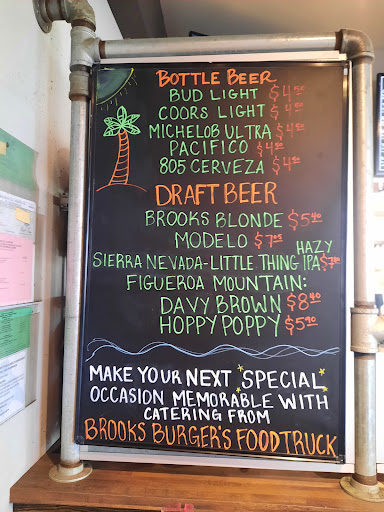 BOTTLE BEER
BUD LIGHT $4.50
COORS LIGHT $4.50
MICHELOB ULTRA $4.50
PACIFICO $4.50
805 CERVEZA $4.50
DRAFT BEER
BROOKS BLONDE $5.90
MODELO $7.05
HAZY
SIERRA NEVADA-LITTLE THING IPA
FIGUEROA MOUNTAIN:
DAVY BROWN
HOPPY POPPY $5.90
MAKE YOUR NEXT *SPECIAL*
OCCASION MEMORABLE WITH
CATERING FROM
BROOKS BURGER'S FOODTRUCK